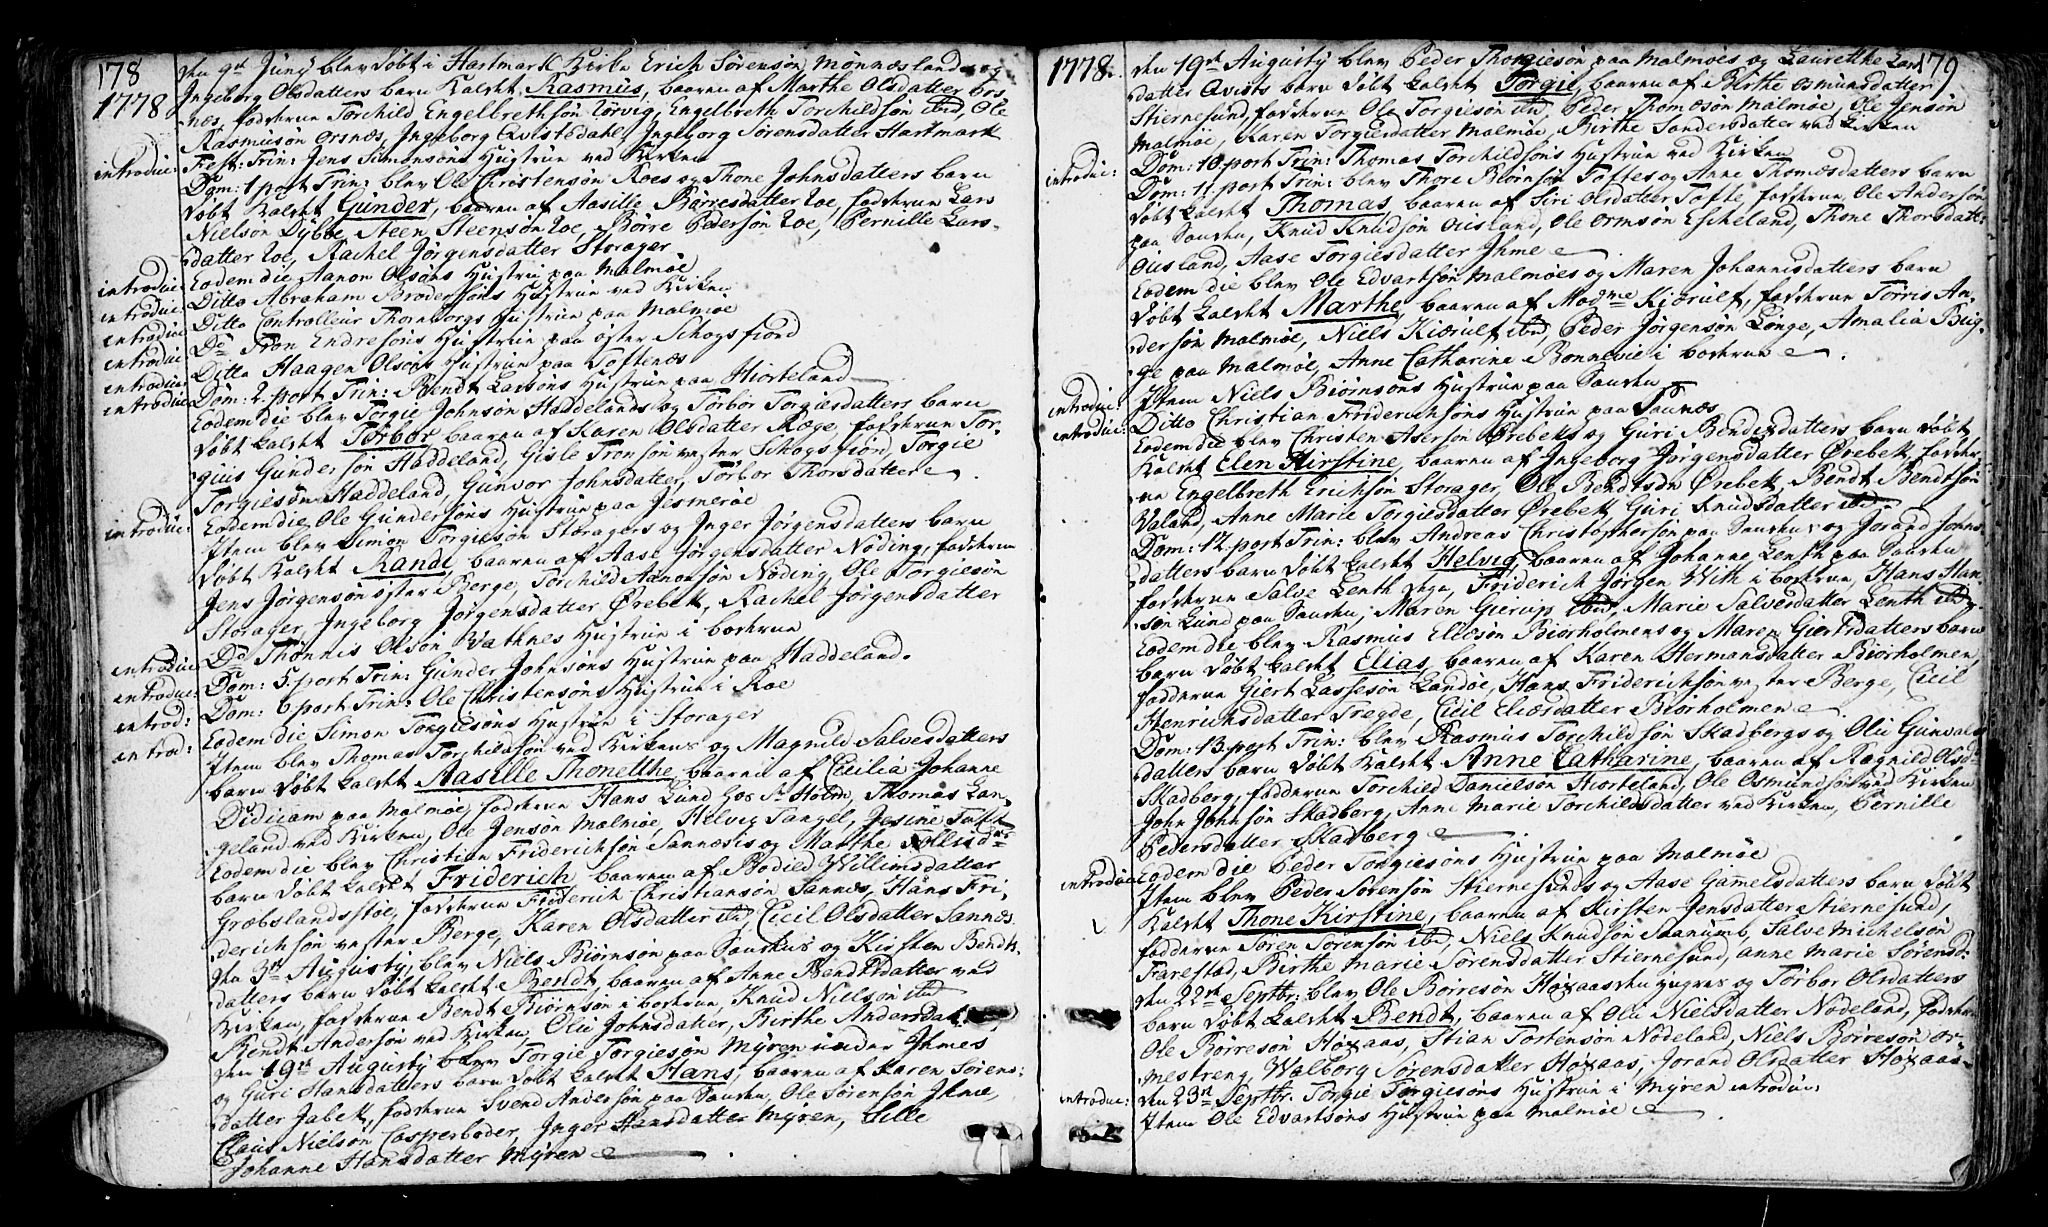 178
1778
den 9de Junij blev döbt i Hartmark Kirke Erich Sörensön Mönnæslands og
Ingeborg Olsdatters barn Kaldet Rasmus, baaren af Marthe Olsdatter Ors-
næs, fadderne Torchild Engelbrethsön Törvig, Engelbreth Torchildsön ibid, Ole
Rasmusön Orsnæs, Ingeborg Qvistsdahl, Ingeborg Sörensdatter Hartmark
introduc: Fest: Trin: Jens Simonsöns Hustrue ved Kirken
Dom: 1 port Trin: blev Ole Christensön Roes og Thone Johnsdatters barn
döbt Kaldet Gunder, baaren af Aasille Börresdatter Roe, fadderne Lars
Nielsön Dyboe, Steen Steensön Roe, Börre Pedersön Roe, Pernille Lars-
datter Roe, Rachel Jörgensdatter Storager
introduc: Eodem die Aanon Olsöns Hustrue paa Malmöe
introduc: Ditto Abraham Brodersöns Hustrue ved Kirken
introduc: Ditto Controlleur Thornborgs Hustrue paa Malmöe
introduc: Do Tron Endresöns Hustrue paa öster Schogsfiord
introduc: Ditto Haagen Olsöns Hustrue paa Toftenæs
introduc: Dom: 2 port Trin: Bendt Larsöns Hustrue paa Hiorteland
Eodem die blev Torgie Johnsön Haddelands og Torbor Torgiesdatters barn
döbt kaldet Torbor, baaren af Karen Olsdatter Skoge, fadderne Tor-
giuis Gundersön Haddeland, Gisle Tronsön vester Schogsfiord, Torgie
Torgiesön Haddeland, Gunvor Johnsdatter, Torbor Thorsdatter
introduc: Eodem die Ole Gundersöns Hustrue paa Jesmeröe
Item blev Simon Torgiesön Storagers og Inger Jörgensdatters barn
döbt Kaldet Rande, baaren af Aase Jörgensdatter Nöding, fadderne
Jens Jörgensön öster Berge, Torchild Aanonsön Nöding, Ole Torgiesön
Storager, Ingeborg Jörgensdatter Örebek, Rachel Jörgensdatter
introduc: Do Thönnis Olsön Vathnes Hustrue i boderne
introduc: Dom: 5 port Trin: Gunder Johnsöns Hustrue paa Haddeland.
introd: Dom: 6 port Trin: Ole Christensöns Hustrue i Roe
introd: Eodem die Simon Torgiesöns Hustrue i Storager
Item blev Thomas Torchildsön ved Kirkens og Magnild Salvesdatters
barn döbt kaldet Aasille Thonetthe, baaren af Cicilia Johanne
Didiicam paa Malmöe, fadderne Hans Lund hos Sr Holm, Thomas Lan-
geland ved Kirken, Ole Jensön Malmöe, Helvig Tangel, Jesine Tofte
Eodem die blev Christian Friderichsön Sannæsis og Marthe Tollisdtrs
barn döbt kaldet Friderich, baaren af Bodied Willimsdatter
Gröbslandsstöe, fadderne Friderich Christiansön Sannæs, Hans Fri-
derichsön vester Berge, Karen Olsdatter ibid, Cicil Olsdatter Sannæs
den 3die Augustij, blev Niels Biörnsön paa Sanskus og Kirsten Bendts-
datters barn döbt kaldet Bendt, baaren af Anne Bendtsdatter ved
Kirken, fadderne Bendt Biörnsön i boderne, Knud Nielsön ibid
Bendt Andersön ved Kirken, Oliv Johnsdatter, Birthe Andersdatter,
den 19de Augustij blev Torgie Torgiesön Myren under Ihmes
og Guri Hansdatters barn döbt kaldet Hans, baaren af Karen Sörens-
datter Jabek, fadderne Svend Andersön paa Sansku, Ole Sörensön Ihme,
Claus Nielsön Casperboder, Inger Hansdatter Myren, Sille
Johanne Hansdatter Myren
1778.
179
den 19de Augustij blev Peder Thorgiesön paa Malmöes og Laurethe Lars-
datter Qvists barn döbt kaldet Torgie, baaren af Birthe Osmunsdatter
Stiernesund, fadderne Ole Torgiesön ibid, Peder Thomösön Malmöe, Ole Jensön
Malmöe, Karen Torgiesdatter Malmöe, Birthe Sandersdatter ved Kirken
introduc: Dom: 10 port Trin: Thomas Torchildsöns Hustrue ved Kirken
Dom: 11 port Trin: blev Thore Biörnsön Toftes og Anne Thomesdatters barn
döbt kaldet Thomas, baaren af Siri Olsdatter Tofte, fadderne, Ole Andersön
paa Sansku, Knud Knudsön Ousland, Ole Ormsön Escheland, Thone Thorsdatt:
Ousland, Aase Torgiesdatter Ihme
Eodem die blev Ole Edvartsön Malmöes og Maren Johannisdatters barn
döbt kaldet Marthe, baaren af Madme Kiærulf, fadderne Torris An-
dersön Malmöe, Niels Kiærulf ibid, Peder Jörgensön Linge, Amalia Bug-
ge paa Malmöe, Anne Catharine Bonnevie i boderne
introduc: Item Niels Biörnsöns Hustrue paa Sansku
introduc: Ditto Christian Friderichsöns Hustrue paa Sannæs
Eodem die blev Christen Asersön Örebeks og Guri Bendixdatters barn döbt
kaldet Elen Kirstine, baaren af Ingeborg Jörgensdatter Örebek, fadder-
ne Engelbreth Erichsön Storager, Ole Bendtsön Örebek, Bendt Bendtsön
Valand, Anne Marie Torgiesdatter Örebek, Guri Knudsdatter ibid
Dom: 12 port Trin: blev Andreas Christophersön paa Sanskus og Jorand Johns-
datters barn döbt kaldet Helvig, baaren af Johanne Lenth paa Sansku
fadderne Salve Lenth, Friderich Jörgen With i boderne, Hans Han-
sön Lund paa Sansku, Maren Gierups ibid, Marie Salvesdatter Lenth ibid
Eodem die blev Rasmus Eliesön Biörholmens og Maren Giertsdatters barn
barn döbt kaldet Elias, baaren af Karen Hermansdatter Biörholmen,
fadderne Giert Lassesön Landöe, Hans Friderichsön vester Berge, Cicil
Henrichsdatter Tregde, Cicil Eliæsdatter Biörholmen
Dom: 13 port Trin: blev Rasmus Torchildsön Skadbergs og Oliv Gunvals-
datters barn döbt kaldet Anne Catharine, baaren af Ragnild Olsdr
Skadberg, fadderne Torchild Danielsön Hiorteland, Ole Osmundsön ved Kirken
John Johnsön Skadberg, Anne Marie Torchildsdatter ved Kirken, Pernille
Pedersdatter Skadberg
introduc: Eodem die Peder Torgiesöns Hustrue paa Malmöe
Item blev Peder Sörensön Stiernesunds og Aase Gamelsdatters barn döbt
Kaldet Thone Kirstine, baaren af Kirsten Jensdatter Stiernesund,
fadderne Sören Sörensön ibid, Niels Knudsön Saanumb, Salve Michelsön
Farestad, Birthe Marie Sörensdatter Stiernesund, Anne Marie Sörensd:
den 22de Septbr: blev Ole Börresön Höxaas og Torbor Olsdatters
barn döbt kaldet Bendt, baaren af Oliv Nielsdatter Nödeland, fadderne
Ole Börresön Höxaas, Stian Tortensön Nödeland, Niels Börresön Or-
mestreng, Walborg Sörensdatter Höxaas, Jorand Olsdatter Höxaas
introduc: den 23de Septbr. Torgie Torgiesöns Hustrue i Myren introduc:
Item Ole Edvartsöns Hustrue paa Malmöe